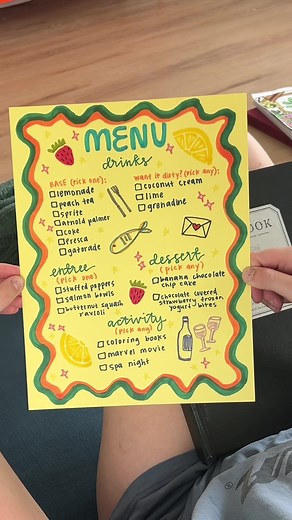 MENU
drinks
BASE (pick one):
lemonade
peach tea
sprite
arnold palmer
coke
fresca
gatorade
want it dirty? (pick any):
coconut cream
lime
grenadine
entree
(pick one)
stuffed peppers
salmon bowls
butternut squash
ravioli
dessert
(pick any)
banana chocolate
chip cake
chocolate covered
strawberry frozen
yogurt bites
activity
(pick any)
coloring books
marvel movie
spa night
OOK